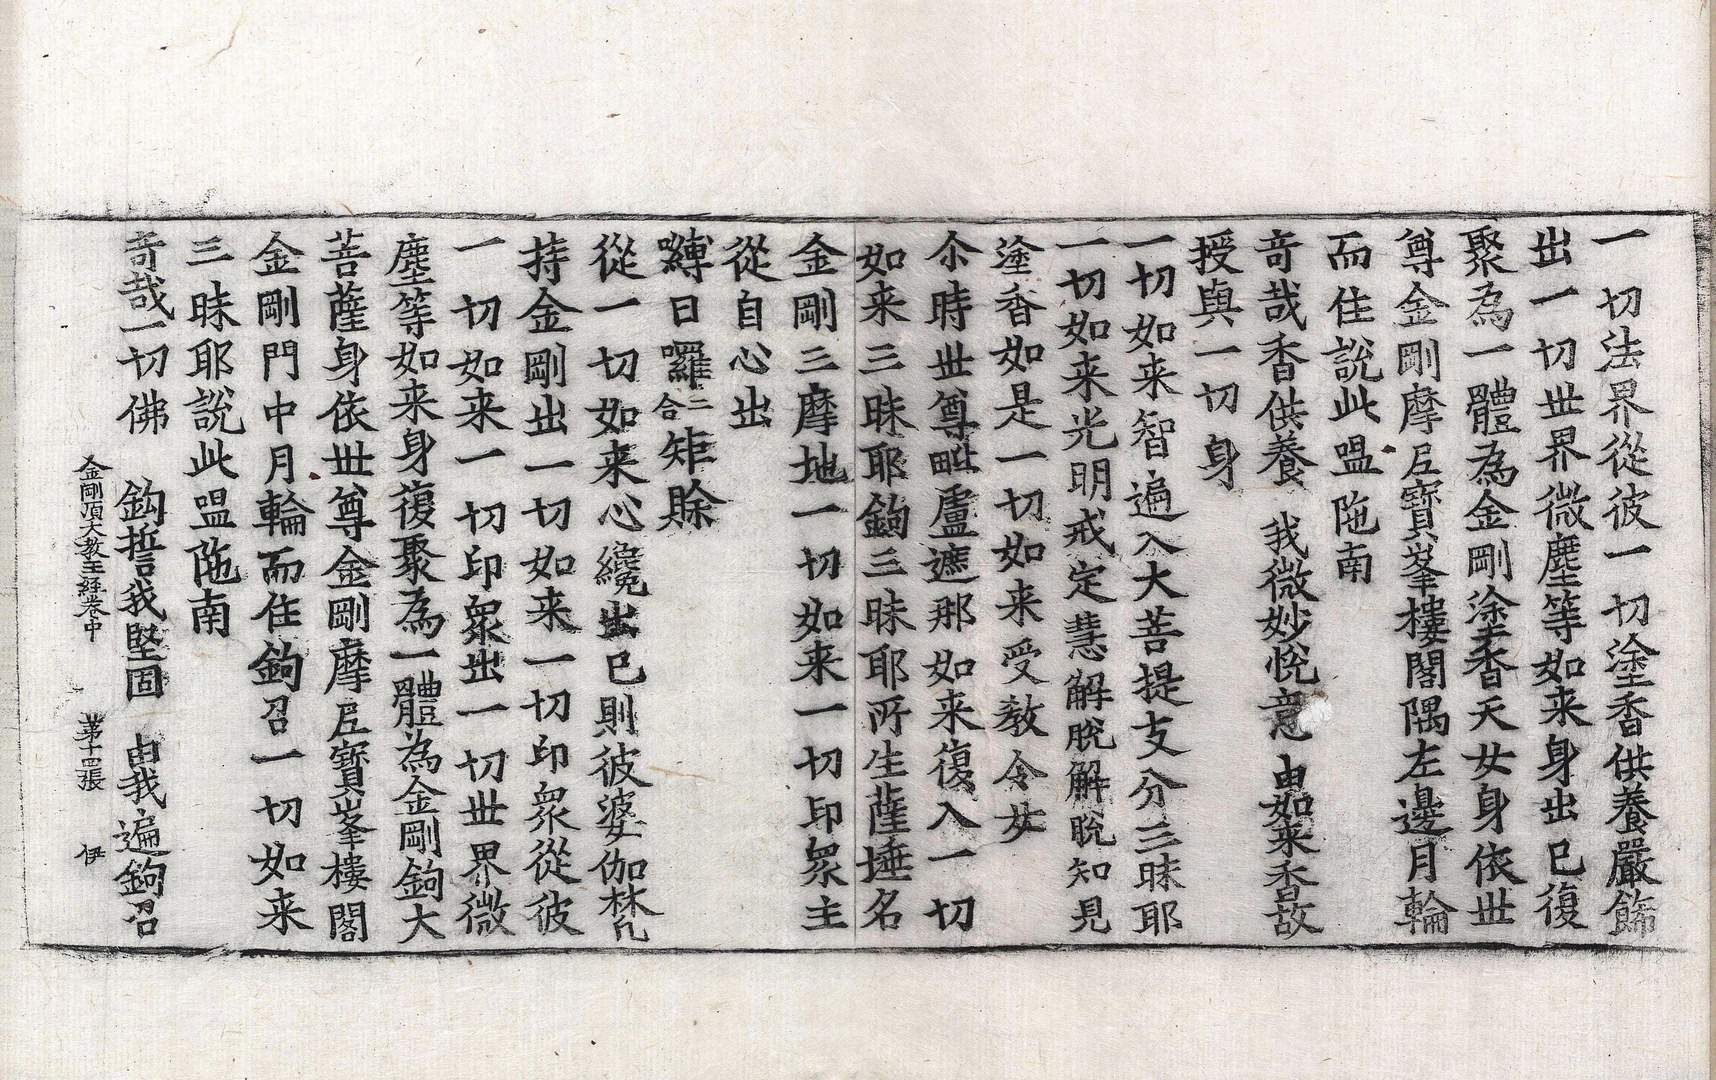 一切法界從彼一切塗香供養嚴飾
出一切世界微塵等如来身出已復
聚為一體為金剛塗香天女身依世
尊金剛摩尼寶峯樓閣隅左邊月輪
而住說此嗢陁南
竒哉香供養 我微妙悅意 由如来香故
授與一切身
一切如来智遍入大菩提支分三昧耶
一切如来光明戒定慧解脫解脫知見
塗香如是一切如来受教令女
尒時世尊毗盧遮那如来復入一切
如来三昧耶鉤三昧耶所生薩埵名
金剛三摩地一切如来一切印衆主
從自心出
嚩日囉二合矩賒
從一切如来心纔出已則彼婆伽梵
持金剛出一切如来一切印衆從彼
一切如来一切印衆出一切世界微
塵等如来身復聚為一體為金剛鉤大
菩薩身依世尊金剛摩尼寶峯樓閣
金剛門中月輪而住鉤召一切如来
三昧耶說此嗢陁南
竒哉一切佛 鉤誓我堅固 由我遍鉤召
金剛頂大教王經卷中 第十四張 伊